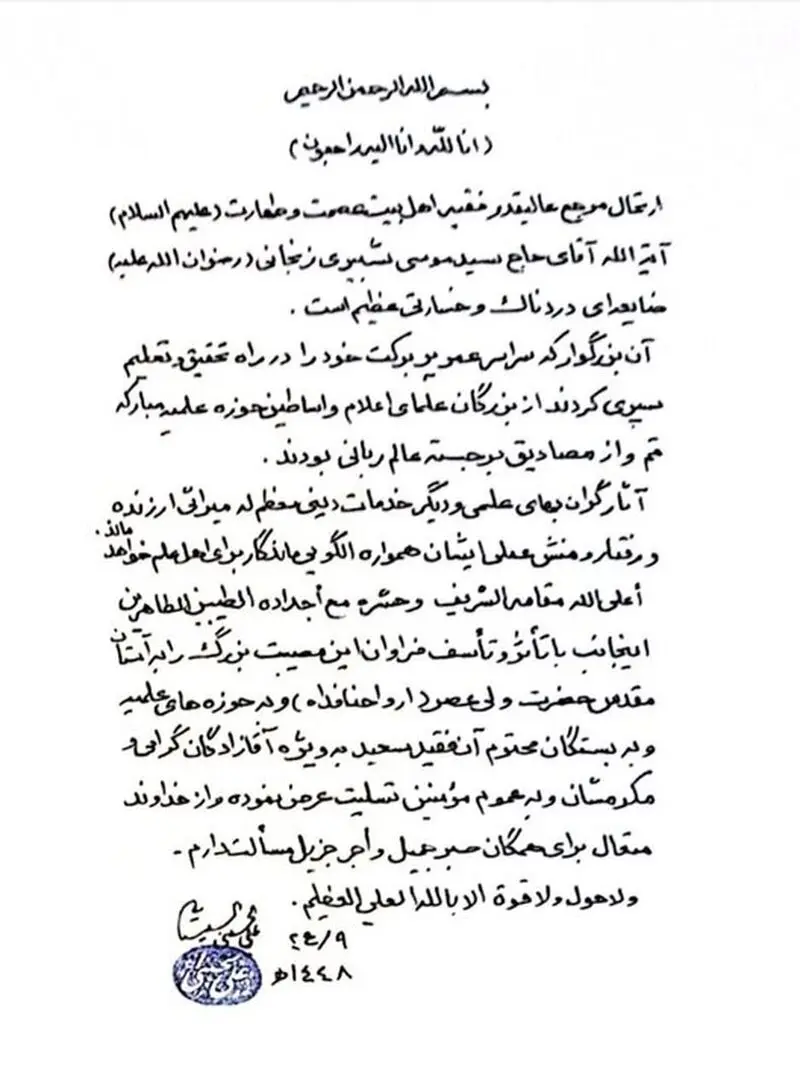 بسم الله الرحمن الرحیم
(انا لله وانا الیه راجعون)
ارتحال مرجع عالیقدر فقیه اهل بیت عصمت و طهارت (علیهم السلام)
آیة الله آقای حاج سید موسی شبیری زنجانی (رضوان الله علیه)
ضایعه‌ای دردناک و خسارتی عظیم است .
آن بزرگوار که سراسر عمر پر برکت خود را در راه تحقیق و تعلیم
سپری کردند از بزرگان علمای اعلام و اساطین حوزه علمیه مبارکه
قم و از مصادیق برجسته عالم ربانی بودند .
آثار گران بهای علمی و دیگر خدمات دینی معظم له میراثی ارزنده
و رفتار و منش عملی ایشان همواره الگویی ماندگار برای اهل علم خواهد ماند .
أعلی الله مقامه الشریف وحشره مع أجداده الطیبین الطاهرین
اینجانب با تأثر و تأسف فراوان این مصیبت بزرگ را به آستان
مقدس حضرت ولی عصر (ارواحنا فداه) و به حوزه های علمیه
و به بستگان محترم آن فقید سعید به ویژه آقازادگان گرامی و
مکرمشان و به عموم مؤمنین تسلیت عرض نموده و از خداوند
متعال برای همگان صبر جمیل و أجر جزیل مسألت دارم -
ولا حول ولا قوة الا بالله العلي العظیم .
علی الحسینی السیستانی
٢٤/٩
١٤٤٨هـ